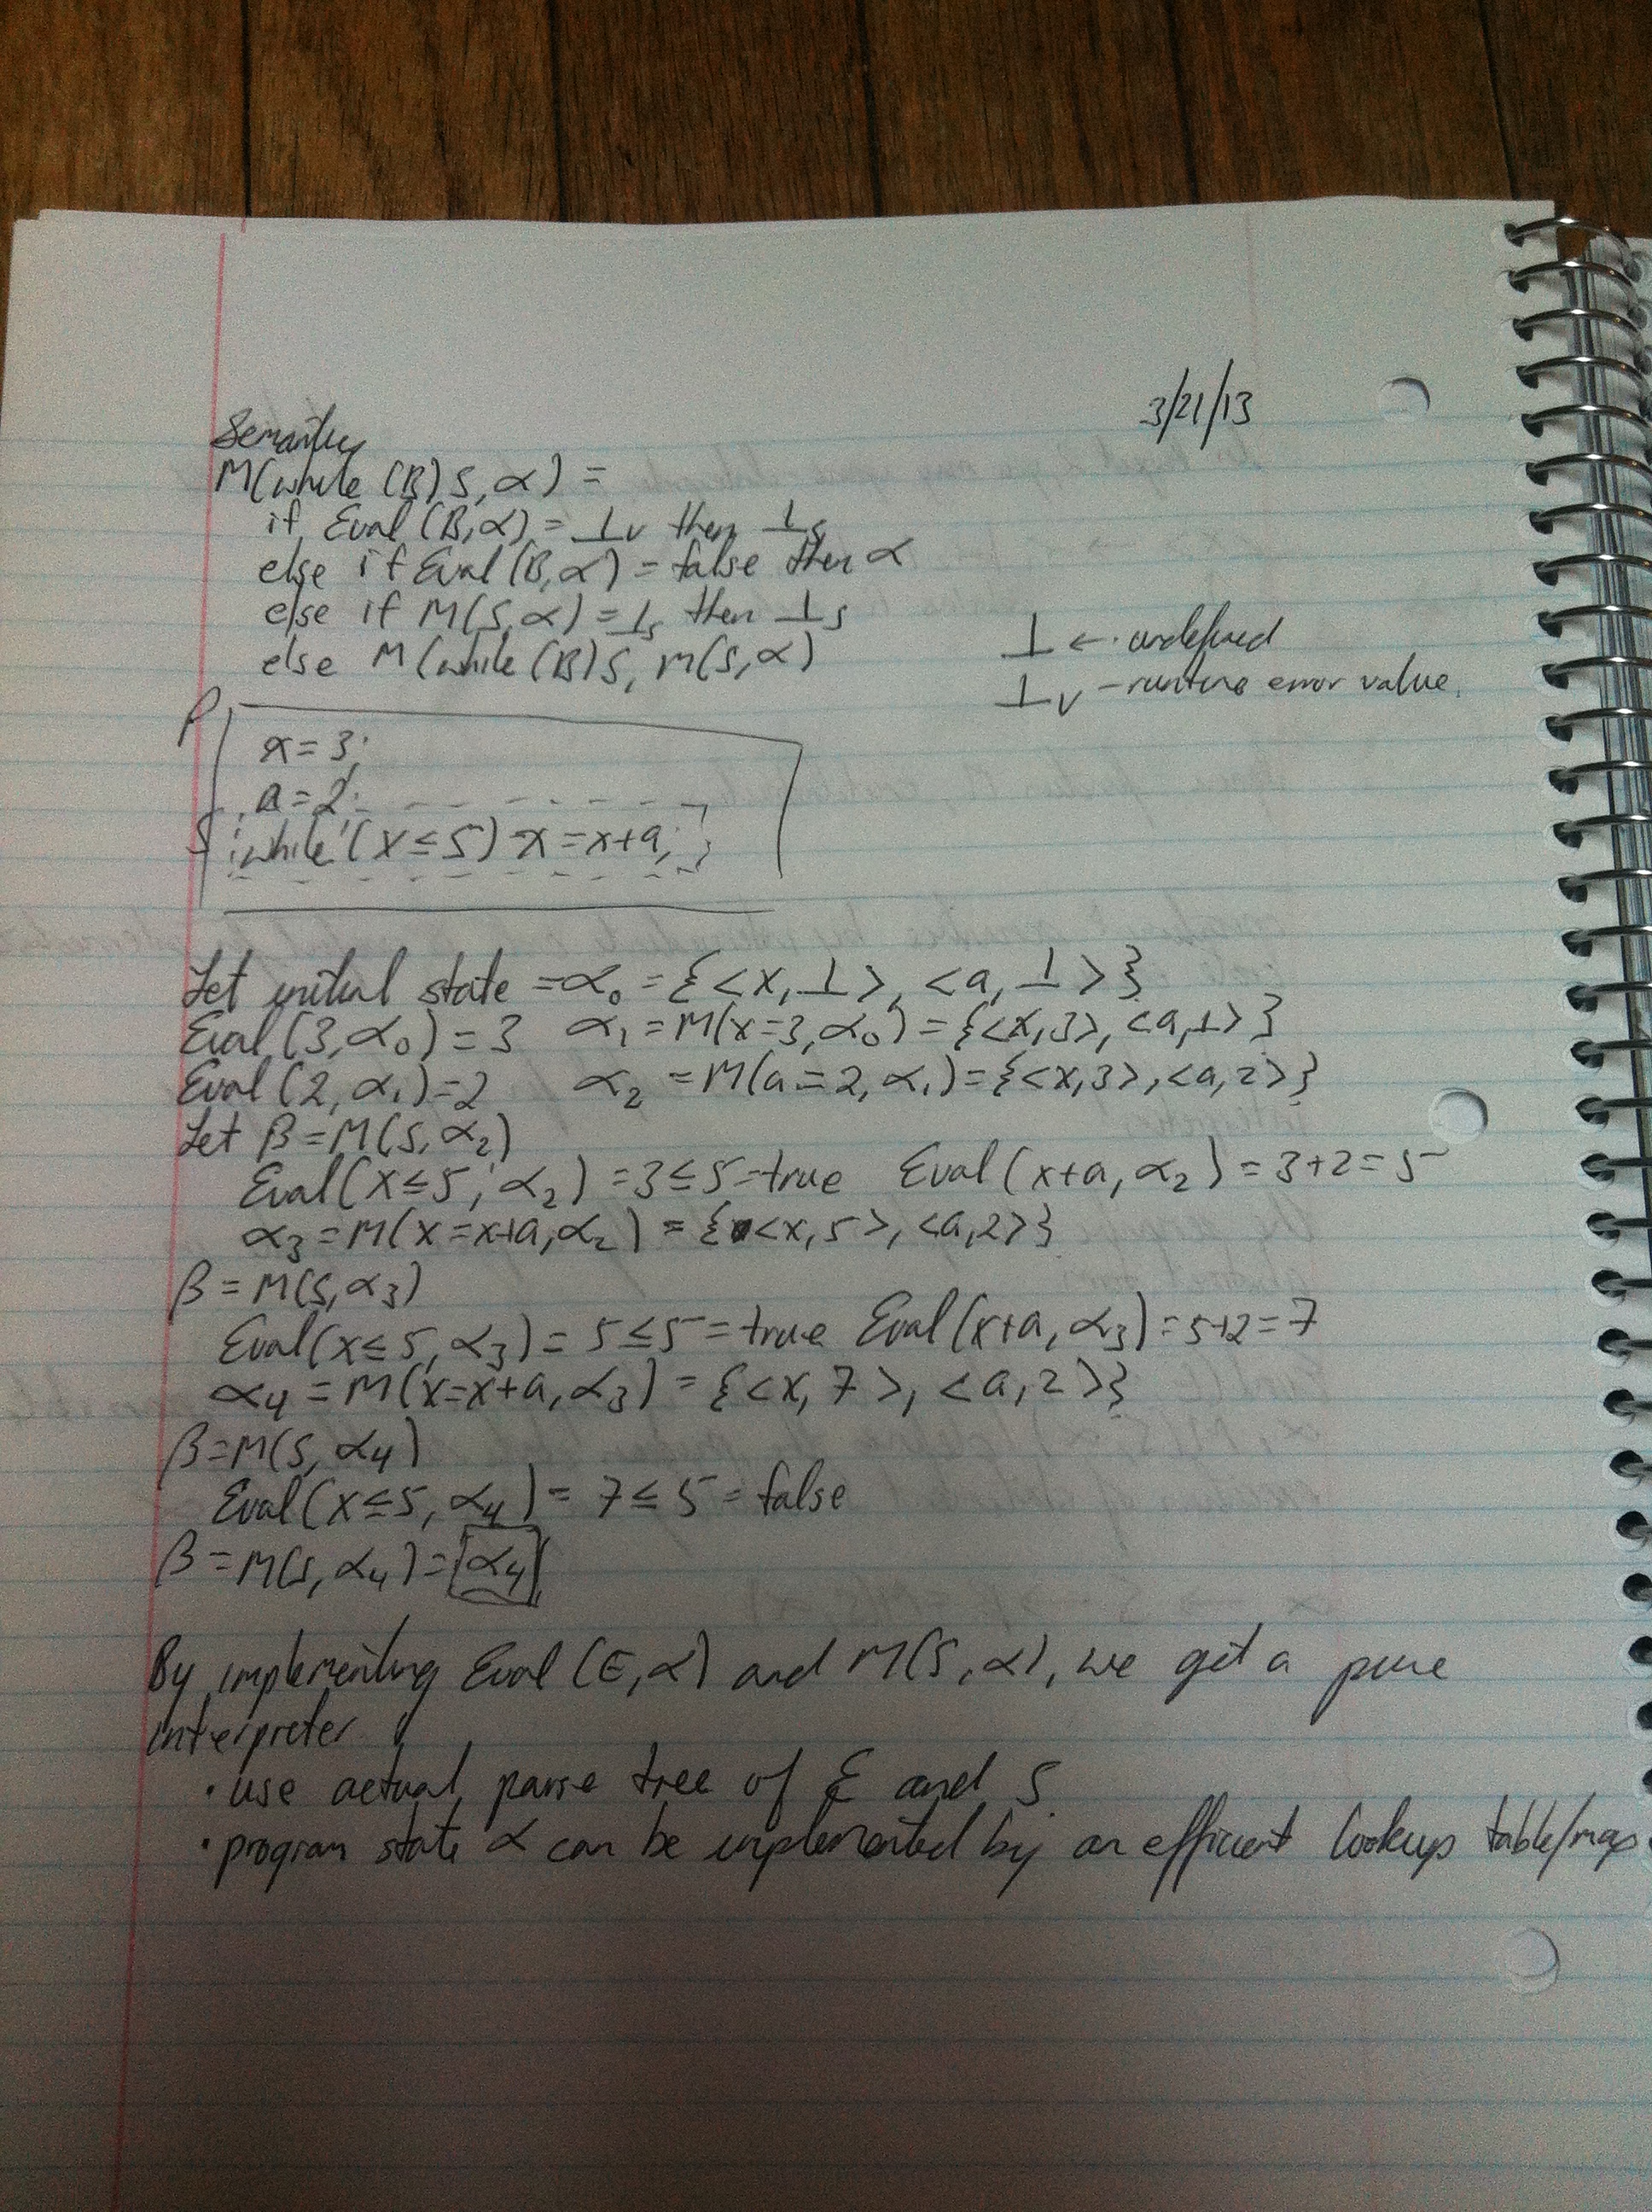 3/21/13
Semantics
M(while (B) S, α) =
if Eval (B, α) = ⊥v then ⊥s
else if Eval (B, α) = false then α
else if M(S, α) = ⊥s then ⊥s
else M(while (B) S, M(S, α)
⊥ ← undefined
⊥v - runtime error value.
P
x = 3;
a = 2;
S while (x ≤ 5) x = x+a;
Let initial state = α₀ = {<x, ⊥>, <a, ⊥>}
Eval (3, α₀) = 3 α₁ = M(x=3, α₀) = {<x,3>, <a,⊥>}
Eval (2, α₁) = 2 α₂ = M(a=2, α₁) = {<x,3>, <a,2>}
Let β = M(S, α₂)
Eval(x ≤ 5, α₂) = 3 ≤ 5 = true Eval (x+a, α₂) = 3+2 = 5
α₃ = M(x = x+a, α₂) = {<x, 5>, <a,2>}
β = M(S, α₃)
Eval(x ≤ 5, α₃) = 5 ≤ 5 = true Eval (x+a, α₃) = 5+2 = 7
α₄ = M(x=x+a, α₃) = {<x, 7>, <a, 2>}
β = M(S, α₄)
Eval(x ≤ 5, α₄) = 7 ≤ 5 = false
β = M(S, α₄) = α₄
By implementing Eval (E, α) and M(S, α), we get a pure
interpreter
• use actual parse tree of E and S
• program state α can be implemented by an efficient lookup table/map